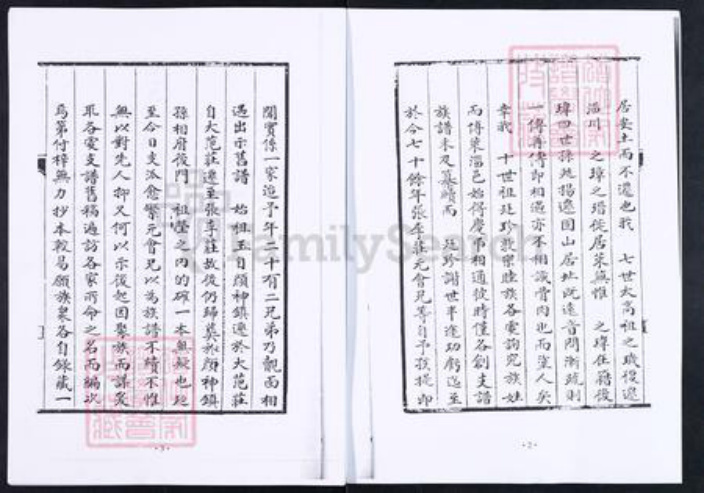 居安土而不遷也我 七世太高祖之瑊後遷
淄川 之璋之瑨從居萊蕪惟 之瑋在籍後
瑋四世孫廷揚遷國山居址既遠音問漸疏則
一傳再傳即相遇亦不相識骨肉也而塗人矣
幸我 十世祖廷珍敦宗睦族各處詢究族姓
而博萊淄邑始得慶弔相通彼時僅各創支譜
族譜未及纂續而 廷珍謝世半途功虧迄至
於今七十餘年張李莊元會兄等自予孩提即
聞實係一家迨予年二十有二兄弟乃覿面相
遇出示舊譜 始祖玉自顏神鎮遷於大范莊
自大范莊遷至張李莊故後仍歸葬於顏神鎮
孫相府後門 祖塋之內的確一本無疑也延
至今日支派愈繁元會兄以為族譜不續不惟
無以對先人抑又何以示後起因聚族而謀爰
取各處支譜舊稿遍訪各家所命之名而編次
焉第付梓無力抄本較易願族眾各自錄藏一
FamilySearch
·2·
·3·